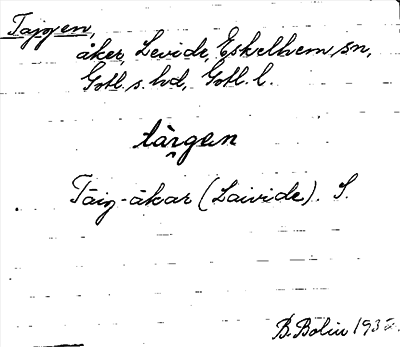 Tajgen,
åker, Levide, Eskelhem sn,
Gotl. s. hd, Gotl. l.
tàrgen
Täig-åkar (Laivide). S.
B. Bolin 193